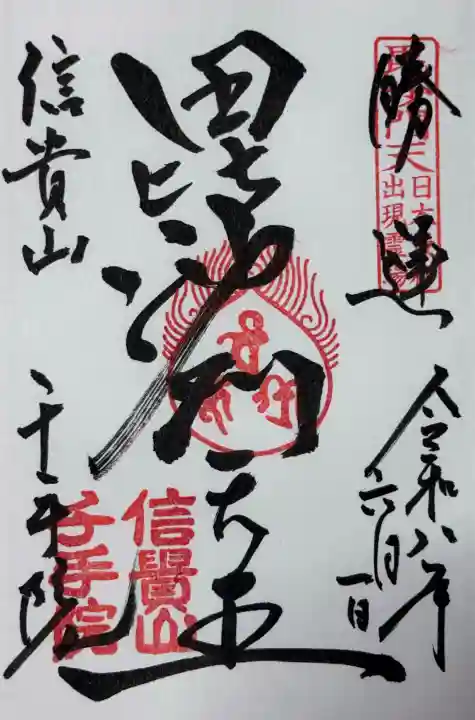 勝運
毘沙門天
出現霊場
令和八年
六月
一日
毘沙門天王
信貴山
千手院
信貴山
千手院